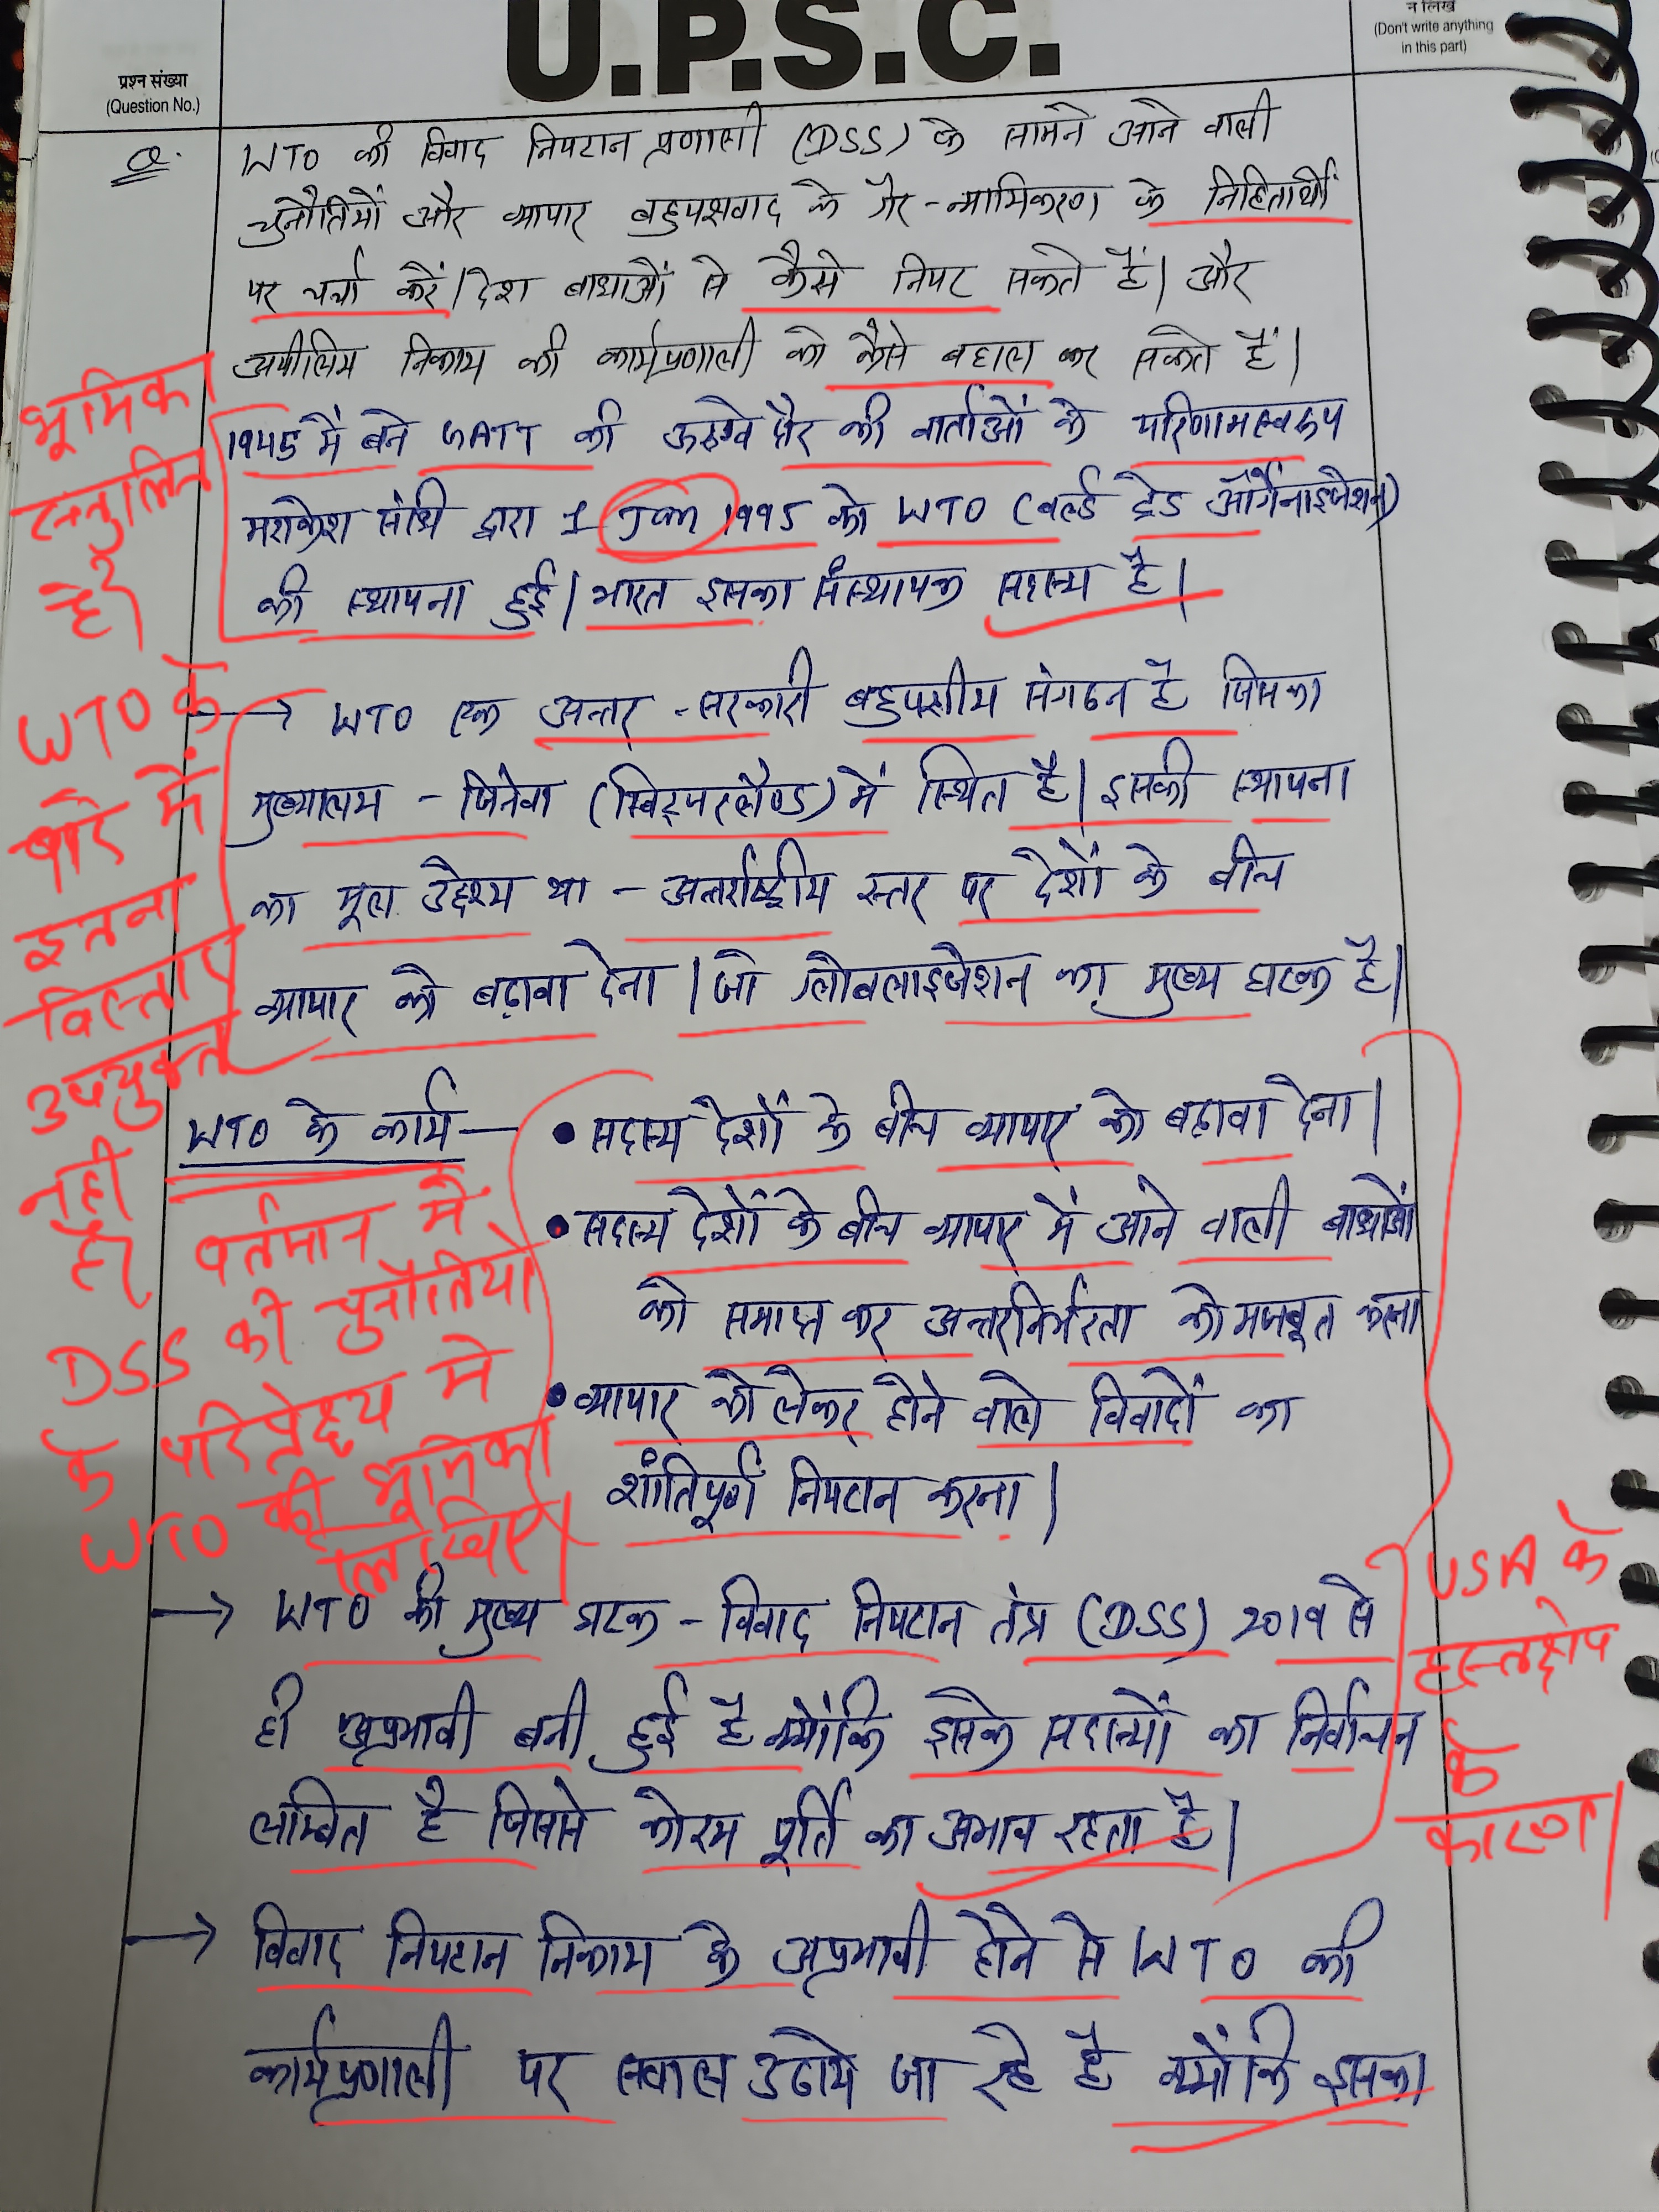 U.P.S.C.
प्रश्न संख्या
(Question No.)
न लिखें
(Don't write anything
in this part)
Q. WTO की विवाद निपटान प्रणाली (DSS) के सामने आने वाली
चुनौतियों और व्यापार बहुपक्षवाद के गैर-न्यायिकरण के निहितार्थों
पर चर्चा करें। देश बाधाओं से कैसे निपट सकते हैं। और
अपीलिय निकाय की कार्यप्रणाली को कैसे बहाल कर सकते हैं।
भूमिका
सन्तुलित
है।
1945 में बने GATT की ऊरुग्वे दौर की वार्ताओं के परिणामस्वरूप
मराकेश संधि द्वारा 1 Jan 1995 को WTO (वर्ल्ड ट्रेड ऑर्गेनाइजेशन)
की स्थापना हुई। भारत इसका संस्थापक सदस्य है।
WTO के
बारे में
इतना
विस्तार
उपयुक्त
नहीं
है।
→ WTO एक अन्तर-सरकारी बहुपक्षीय संगठन है जिसका
मुख्यालय - जिनेवा (स्विट्जरलैण्ड) में स्थित है। इसकी स्थापना
का मूल उद्देश्य था - अन्तर्राष्ट्रीय स्तर पर देशों के बीच
व्यापार को बढ़ावा देना। जो ग्लोबलाइजेशन का मुख्य घटक है।
WTO के कार्य — • सदस्य देशों के बीच व्यापार को बढ़ावा देना।
• सदस्य देशों के बीच व्यापार में आने वाली बाधाओं
को समाप्त कर अन्तरनिर्भरता को मजबूत करना
• व्यापार को लेकर होने वाले विवादों का
शांतिपूर्ण निपटान करना।
वर्तमान में
DSS की चुनौतियों
के परिप्रेक्ष्य में
WTO की भूमिका
लिखिए।
→ WTO की मुख्य घटक - विवाद निपटान तंत्र (DSS) 2019 से
ही अप्रभावी बनी हुई है क्योंकि इसके सदस्यों का निर्वाचन
लम्बित है जिससे कोरम पूर्ति का अभाव रहता है।
USA के
हस्तक्षेप
के
कारण।
→ विवाद निपटान निकाय के अप्रभावी होने से WTO की
कार्यप्रणाली पर सवाल उठाये जा रहे है क्योंकि इसका